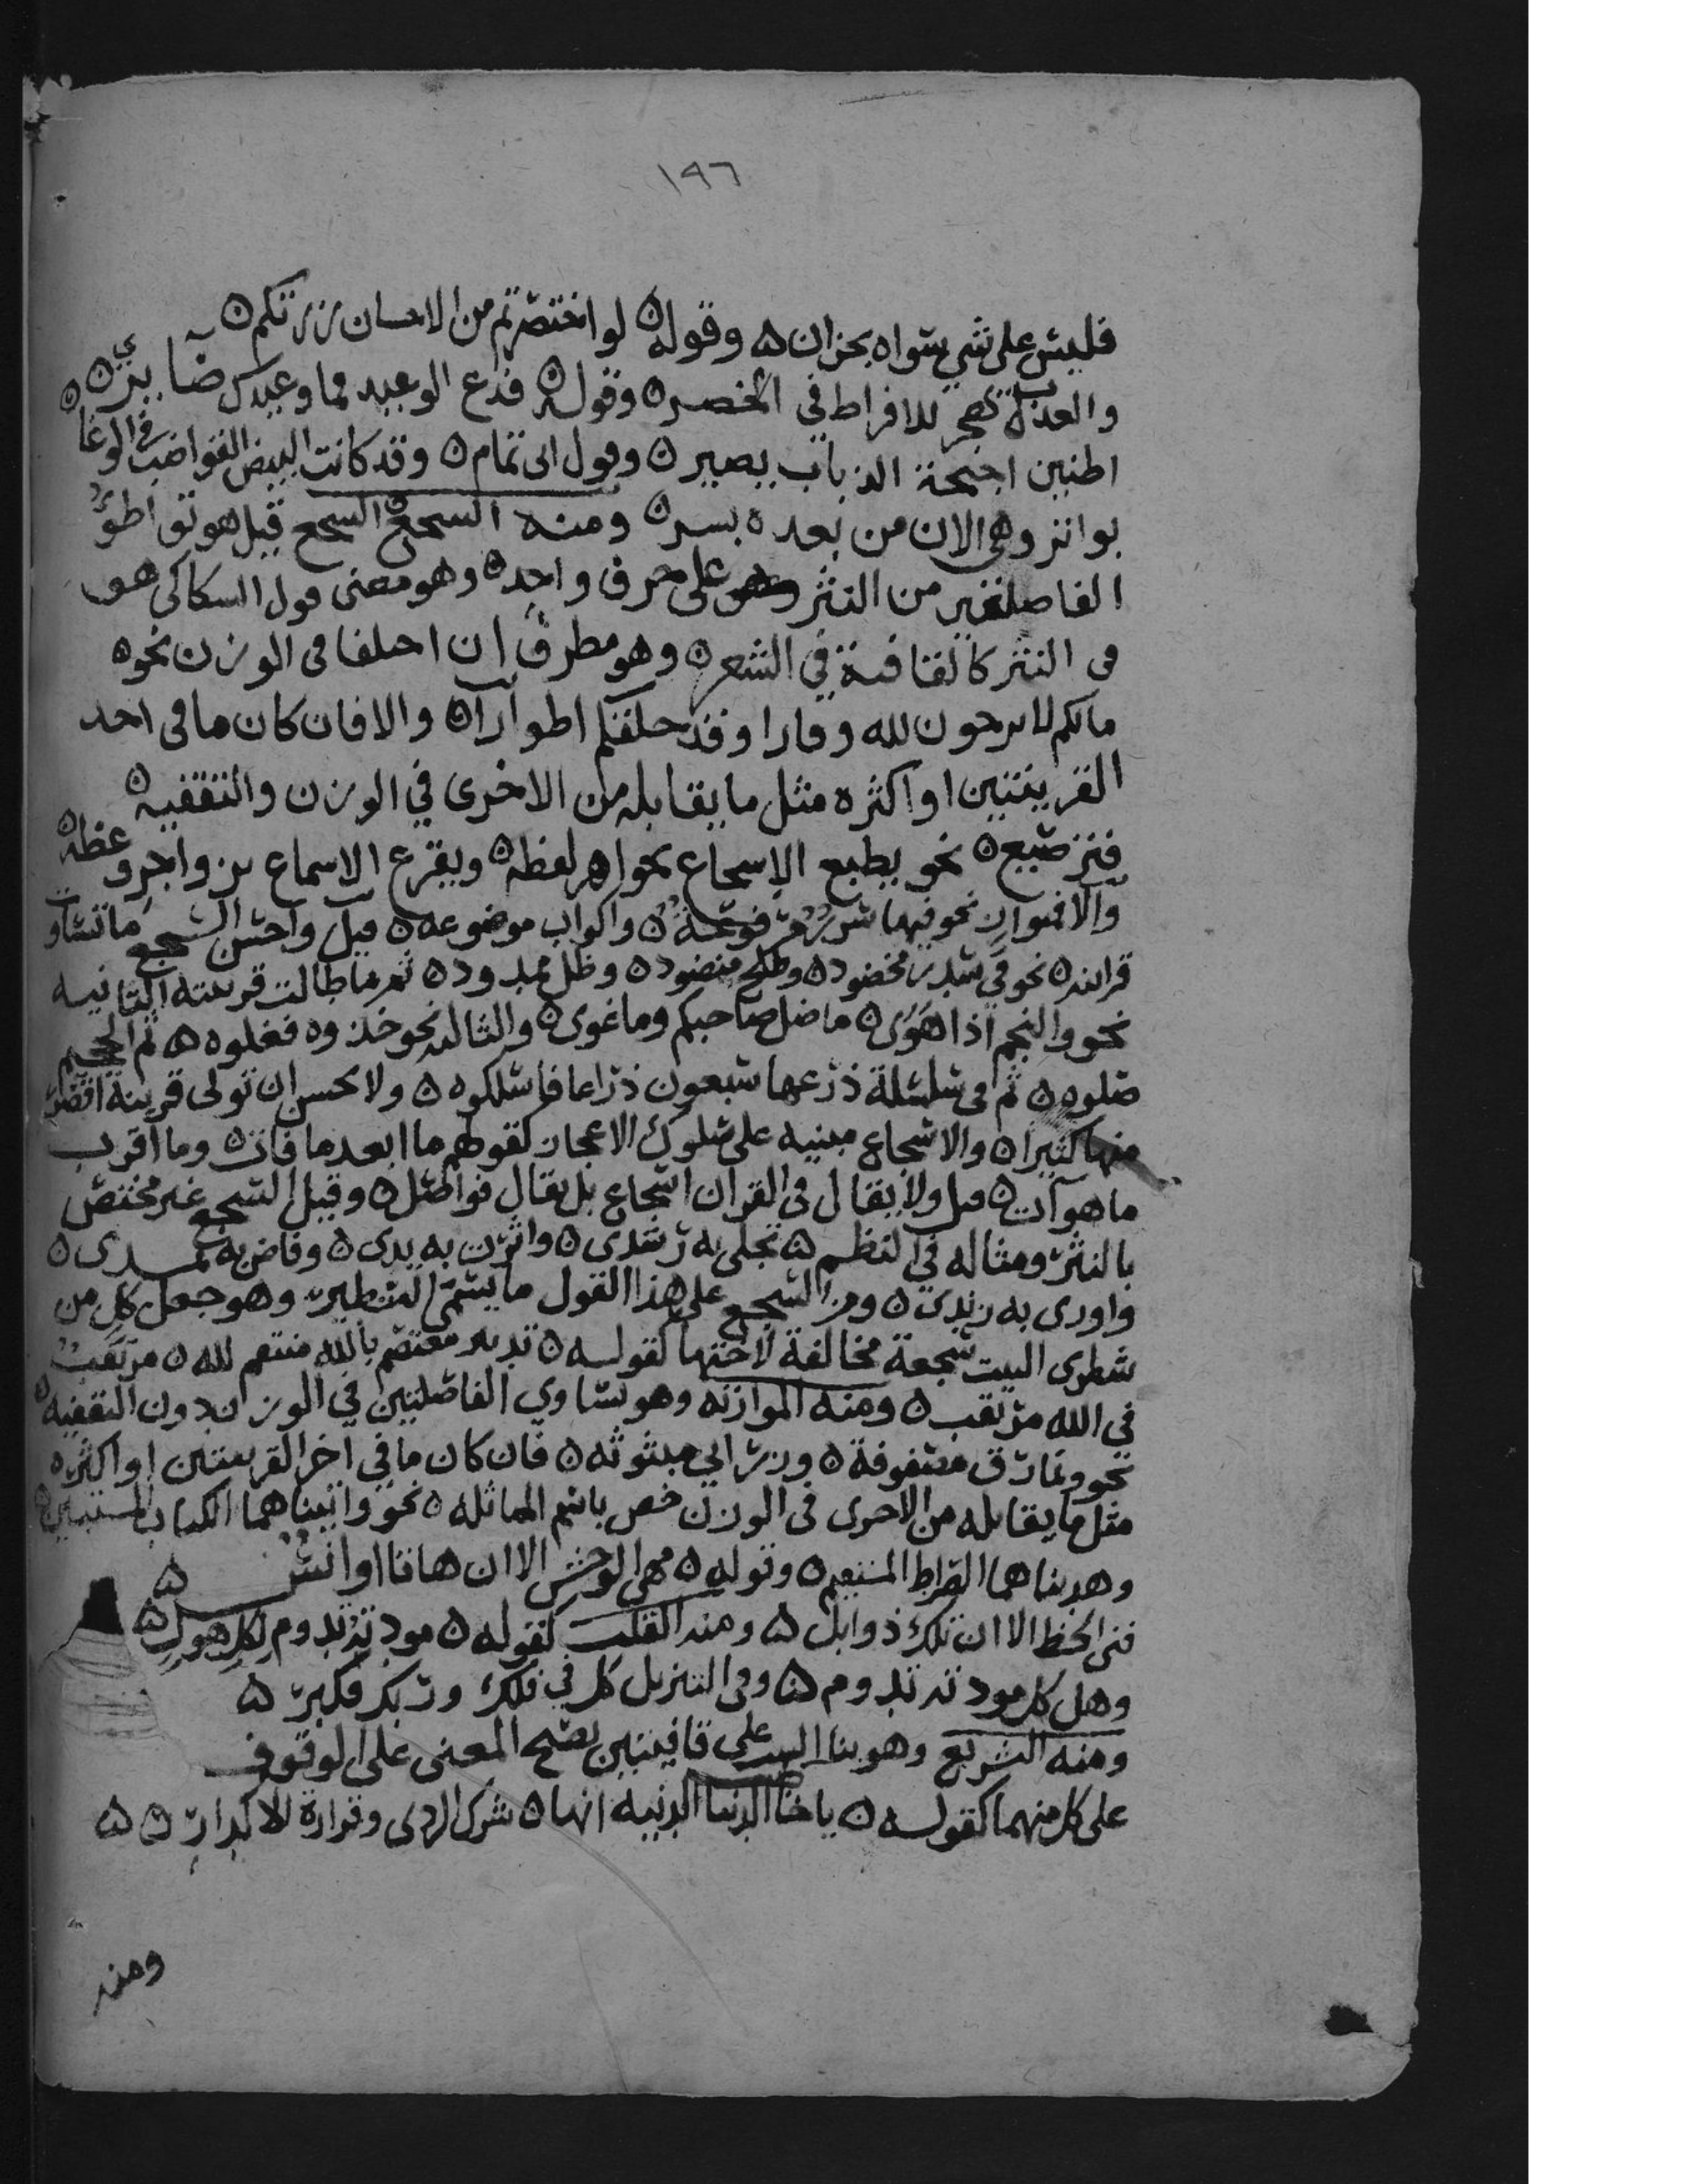 ١٩٦
فليس على شي سواه بخزان ۵ وقوله ۵ لو اختصرتم من الاحسان زرتكم ۵
والعذب يهجر للافراط في الخصر ۵ وقوله ۵ فدع الوعيد فما وعيدك ضايري ۵
اطنين اجنحة الذباب يصير ۵ وقول ابي تمام ۵ وقد كانت البيض القواضب في الوغا ۵
بواتر وهي الان من بعده بسر ۵ ومنه السجع ۵ السجع قيل هو تواطؤ
الفاصلتين من النثر على حرف واحد ۵ وهو معنى قول السكاكي هو
في النثر كالقافية في الشعر ۵ وهو مطرف ان اختلفا في الوزن نحو ۵
مالكم لا ترجون لله وقارا وقد خلقكم اطوارا ۵ والا فان كان ما في احد
القرينتين او اكثره مثل ما يقابله من الاخرى في الوزن والتقفيه ۵
فترصيع ۵ نحو يطبع الاسجاع بجواهر لفظه ۵ ويقرع الاسماع بزواجر وعظه ۵
والا فمتوازن نحو فيها سرر مرفوعة ۵ واكواب موضوعه ۵ قيل واحسن السجع ما تساوت
قراينه ۵ نحو في سدر مخضود ۵ وطلح منضود ۵ وظل ممدود ۵ ثم ما طالت قرينته الثانيه
نحو والنجم اذا هوى ۵ ما ضل صاحبكم وما غوى ۵ والثالثه نحو خذوه فغلوه ۵ ثم الجحيم
صلوه ۵ ثم في سلسلة ذرعها سبعون ذراعا فاسلكوه ۵ ولا يحسن ان تولى قرينة اقصر
منها كثيرا ۵ والاسجاع مبنيه على سكون الاعجاز كقولهم ما ابعد ما فات ۵ وما اقرب
ما هو آت ۵ قيل ولا يقال في القران اسجاع بل يقال فواصل ۵ وقيل السجع غير مختص
بالنثر ومثاله في النظم ۵ تجلى به رشدي ۵ واثرت به يدي ۵ وفاض به ثمدي ۵
واورى به زندي ۵ ومن السجع على هذا القول ما يسمى التشطير وهو جعل كل من
شطري البيت سجعة مخالفة لاختها كقوله ۵ تدبير معتصم بالله منتقم لله ۵ مرتغب
في الله مرتقب ۵ ومنه الموازنه وهو تساوي الفاصلتين في الوزن دون التقفيه ۵
نحو ونمارق مصفوفة ۵ وزرابي مبثوثه ۵ فان كان ما في اخر القرينتين او اكثره
مثل ما يقابله من الاخرى في الوزن خص باسم المماثله ۵ نحو واتيناهما الكتاب المستبين ۵
وهديناهما الصراط المستقيم ۵ وقوله ۵ مهى الوحش الا ان هاتا اوانس ۵
قنى الخط الا ان تلك ذوابل ۵ ومنه القلب كقوله ۵ مودته تدوم لكل هول ۵
وهل كل مودته تدوم ۵ وفي التنزيل كل في فلك وربك فكبر ۵
ومنه التشريع وهو بنا البيت على قافيتين يصح المعنى على الوقوف
على كل منهما كقوله ۵ يا خاطب الدنيا الدنيه انها ۵ شرك الردى وقرارة الاكدار ۵ ۵
ومنه